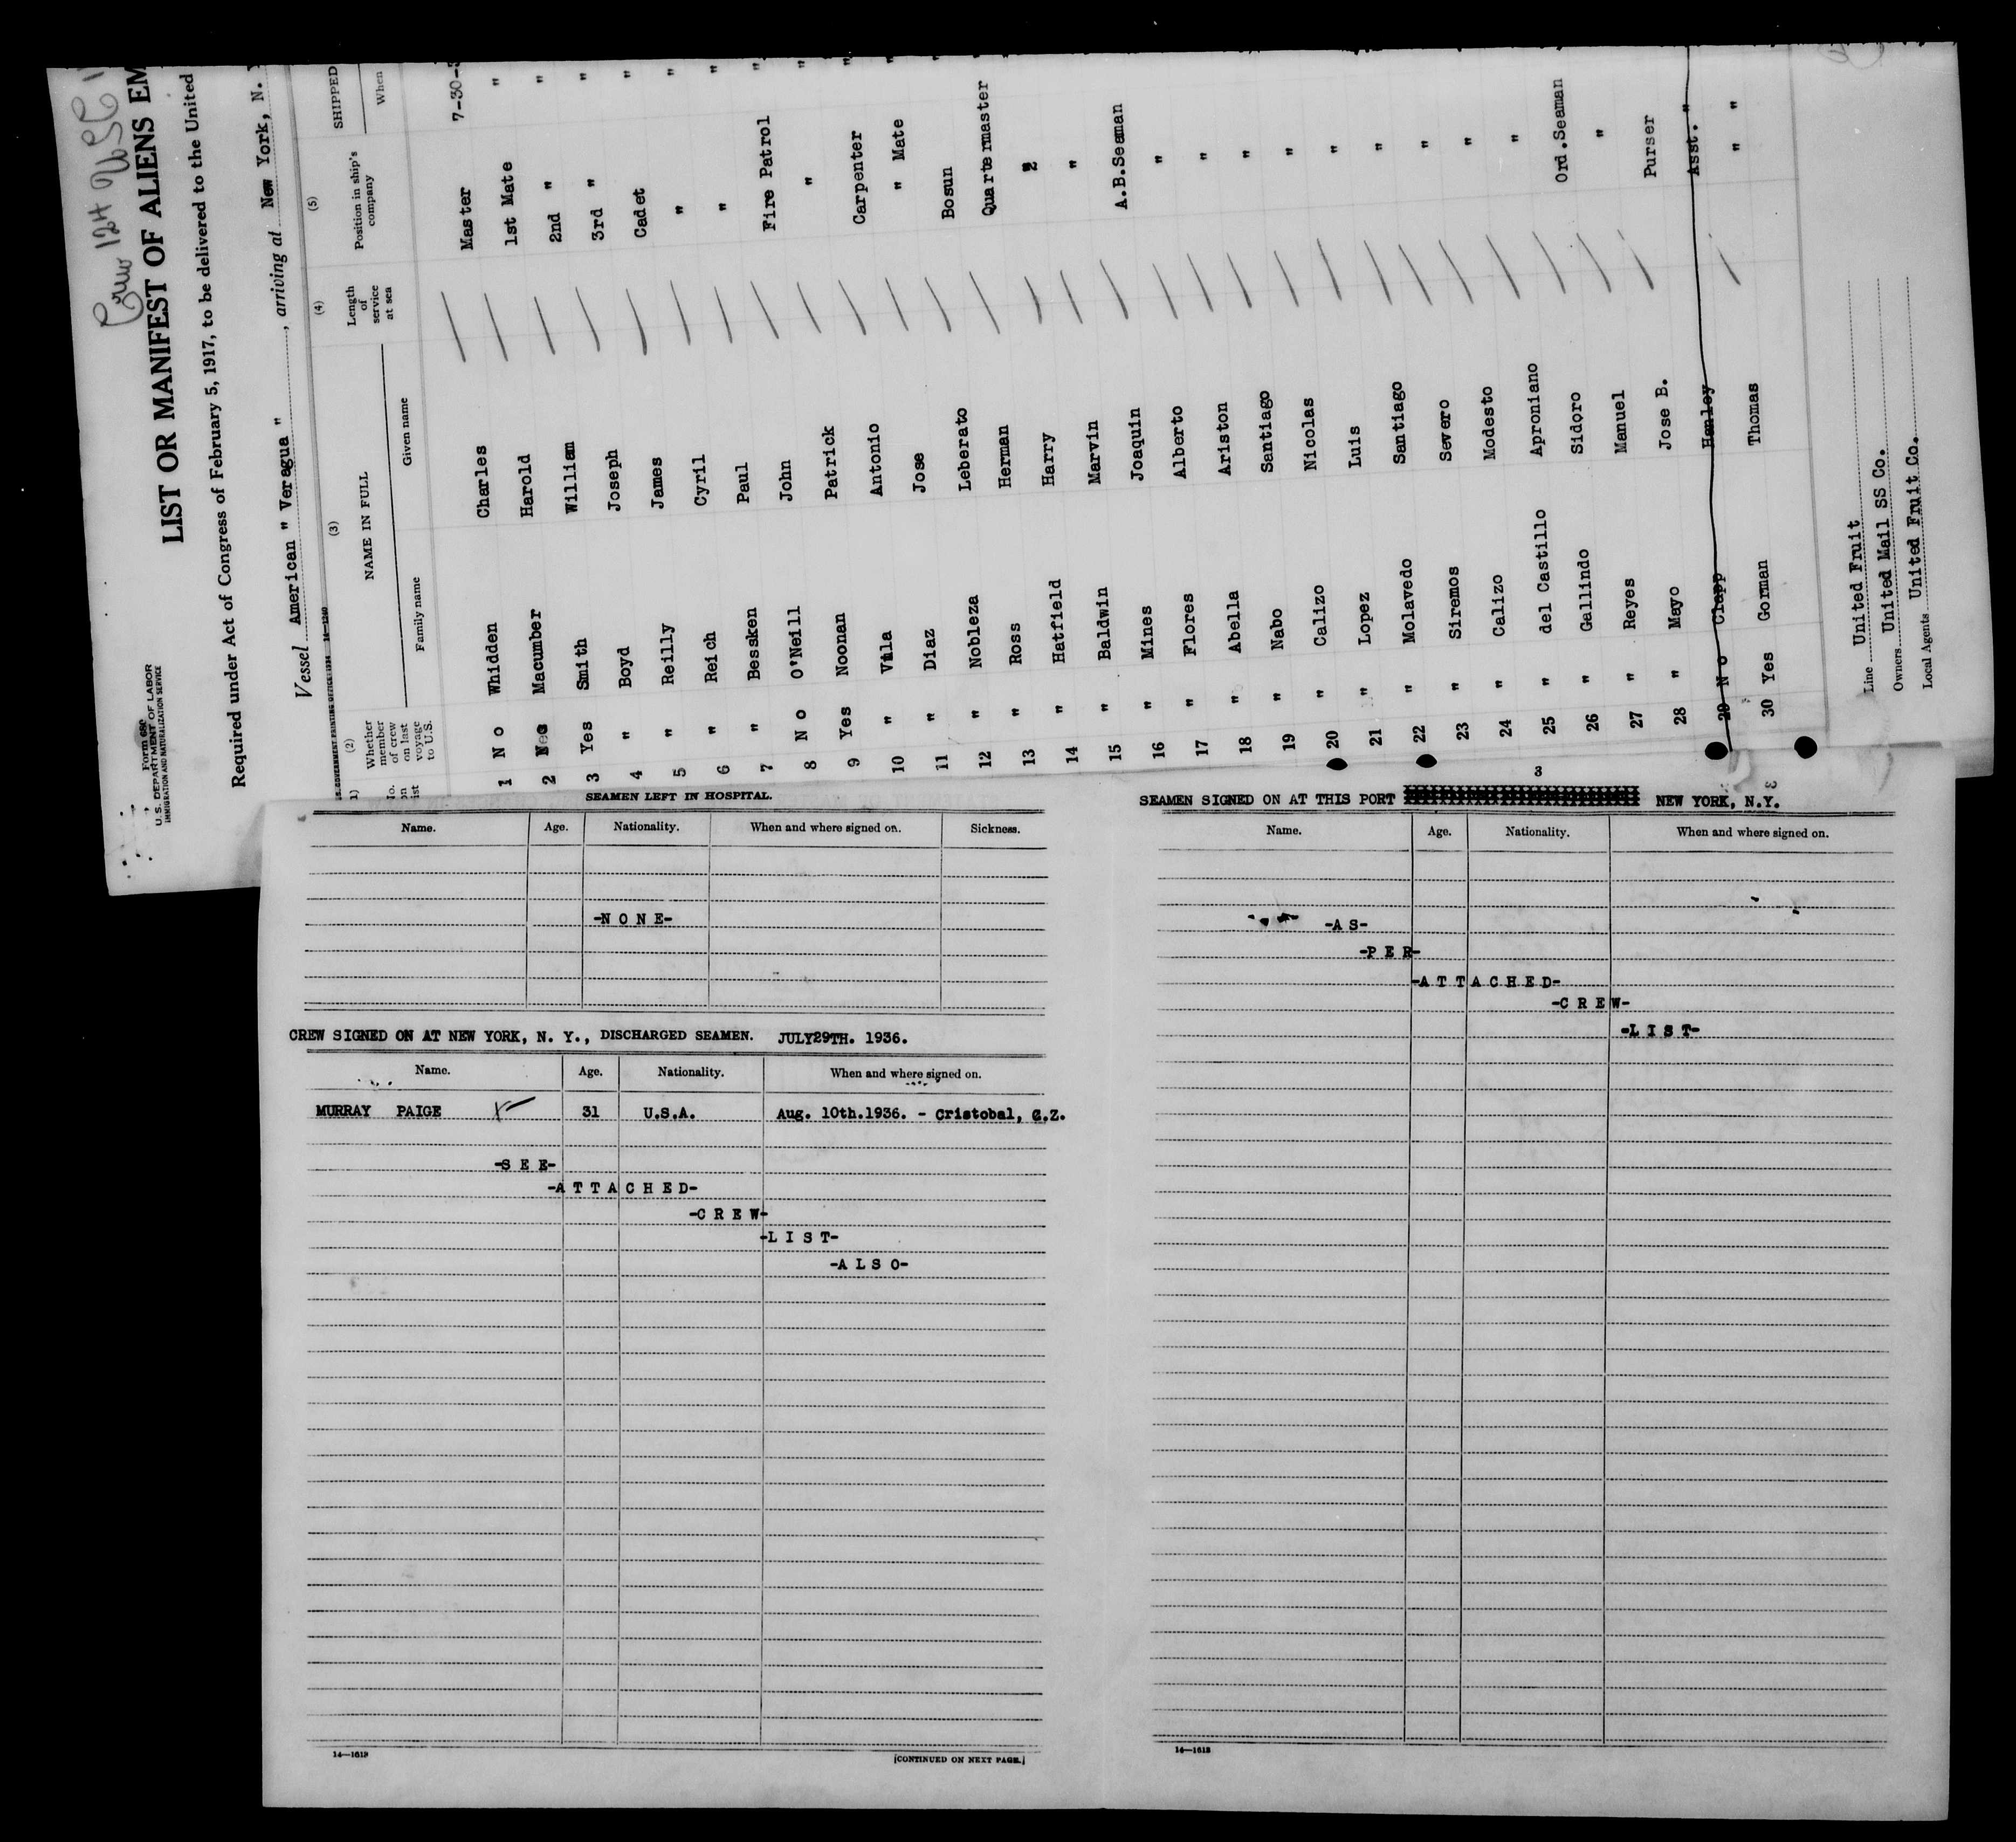 Crew 124 USC
LIST OR MANIFEST OF ALIENS EM
Required under Act of Congress of February 5, 1917, to be delivered to the United
Form 680
U. S. DEPARTMENT OF LABOR
IMMIGRATION AND NATURALIZATION SERVICE
Vessel American " Veragua " , arriving at New York, N. Y
(2) (3) (4) (5)
Whether member of crew on last voyage to U.S. NAME IN FULL Length of service at sea Position in ship's company SHIPPED
Family name Given name When
1 No Whidden Charles Master 7-30-3
2 Macumber Harold 1st Mate "
3 Yes Smith William 2nd " "
4 " Boyd Joseph 3rd " "
5 " Reilly James Cadet "
6 " Reich Cyril " "
7 " Bessken Paul " "
8 No O'Neill John Fire Patrol "
9 Yes Noonan Patrick " "
10 " Vila Antonio Carpenter "
11 " Diaz Jose " Mate "
12 " Nobleza Leberato Bosun "
13 " Ross Herman Quartermaster "
14 " Hatfield Harry "
15 " Baldwin Marvin "
16 " Mines Joaquin A.B.Seaman
17 " Flores Alberto "
18 " Abella Ariston "
19 " Nabo Santiago "
20 " Calizo Nicolas "
21 " Lopez Luis "
22 " Molavedo Santiago "
23 " Siremos Severo "
24 " Calizo Modesto "
25 " del Castillo Aproniano "
26 " Gallindo Sidoro Ord.Seaman
27 " Reyes Manuel "
28 " Mayo Jose B. Purser
29 No Clapp Hanley Asst. "
30 Yes Gorman Thomas " "
Line United Fruit
Owners United Mail SS Co.
Local Agents United Fruit Co.
SEAMEN LEFT IN HOSPITAL.
Name. Age. Nationality. When and where signed on. Sickness.
-N O N E-
CREW SIGNED ON AT NEW YORK, N. Y., DISCHARGED SEAMEN. JULY29TH. 1936.
Name. Age. Nationality. When and where signed on.
MURRAY PAIGE 31 U.S.A. Aug. 10th.1936. - Cristobal, C.Z.
-S E E-
-A T T A C H E D-
-C R E W-
-L I S T-
-A L S O-
14—1613
[CONTINUED ON NEXT PAGE.]
3
SEAMEN SIGNED ON AT THIS PORT NEW YORK, N.Y.
Name. Age. Nationality. When and where signed on.
-A S-
-P E R-
-A T T A C H E D-
-C R E W-
-L I S T-
14—1613